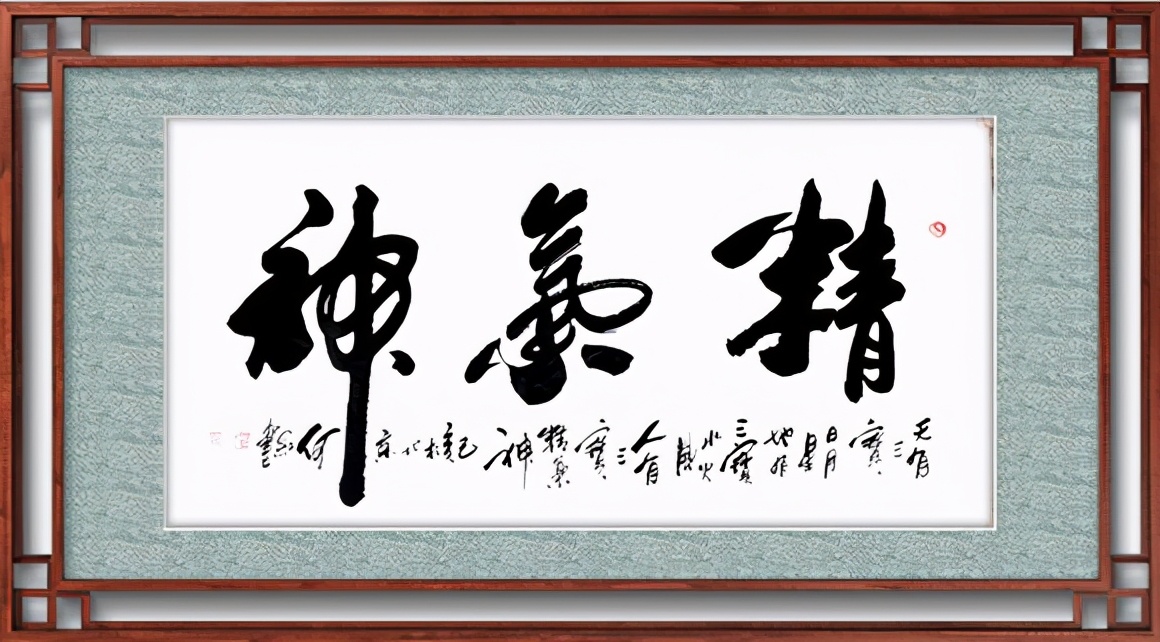 精氣神
天有三寶日月星地有三寶水火風人有三寶精氣神己亥於北京何